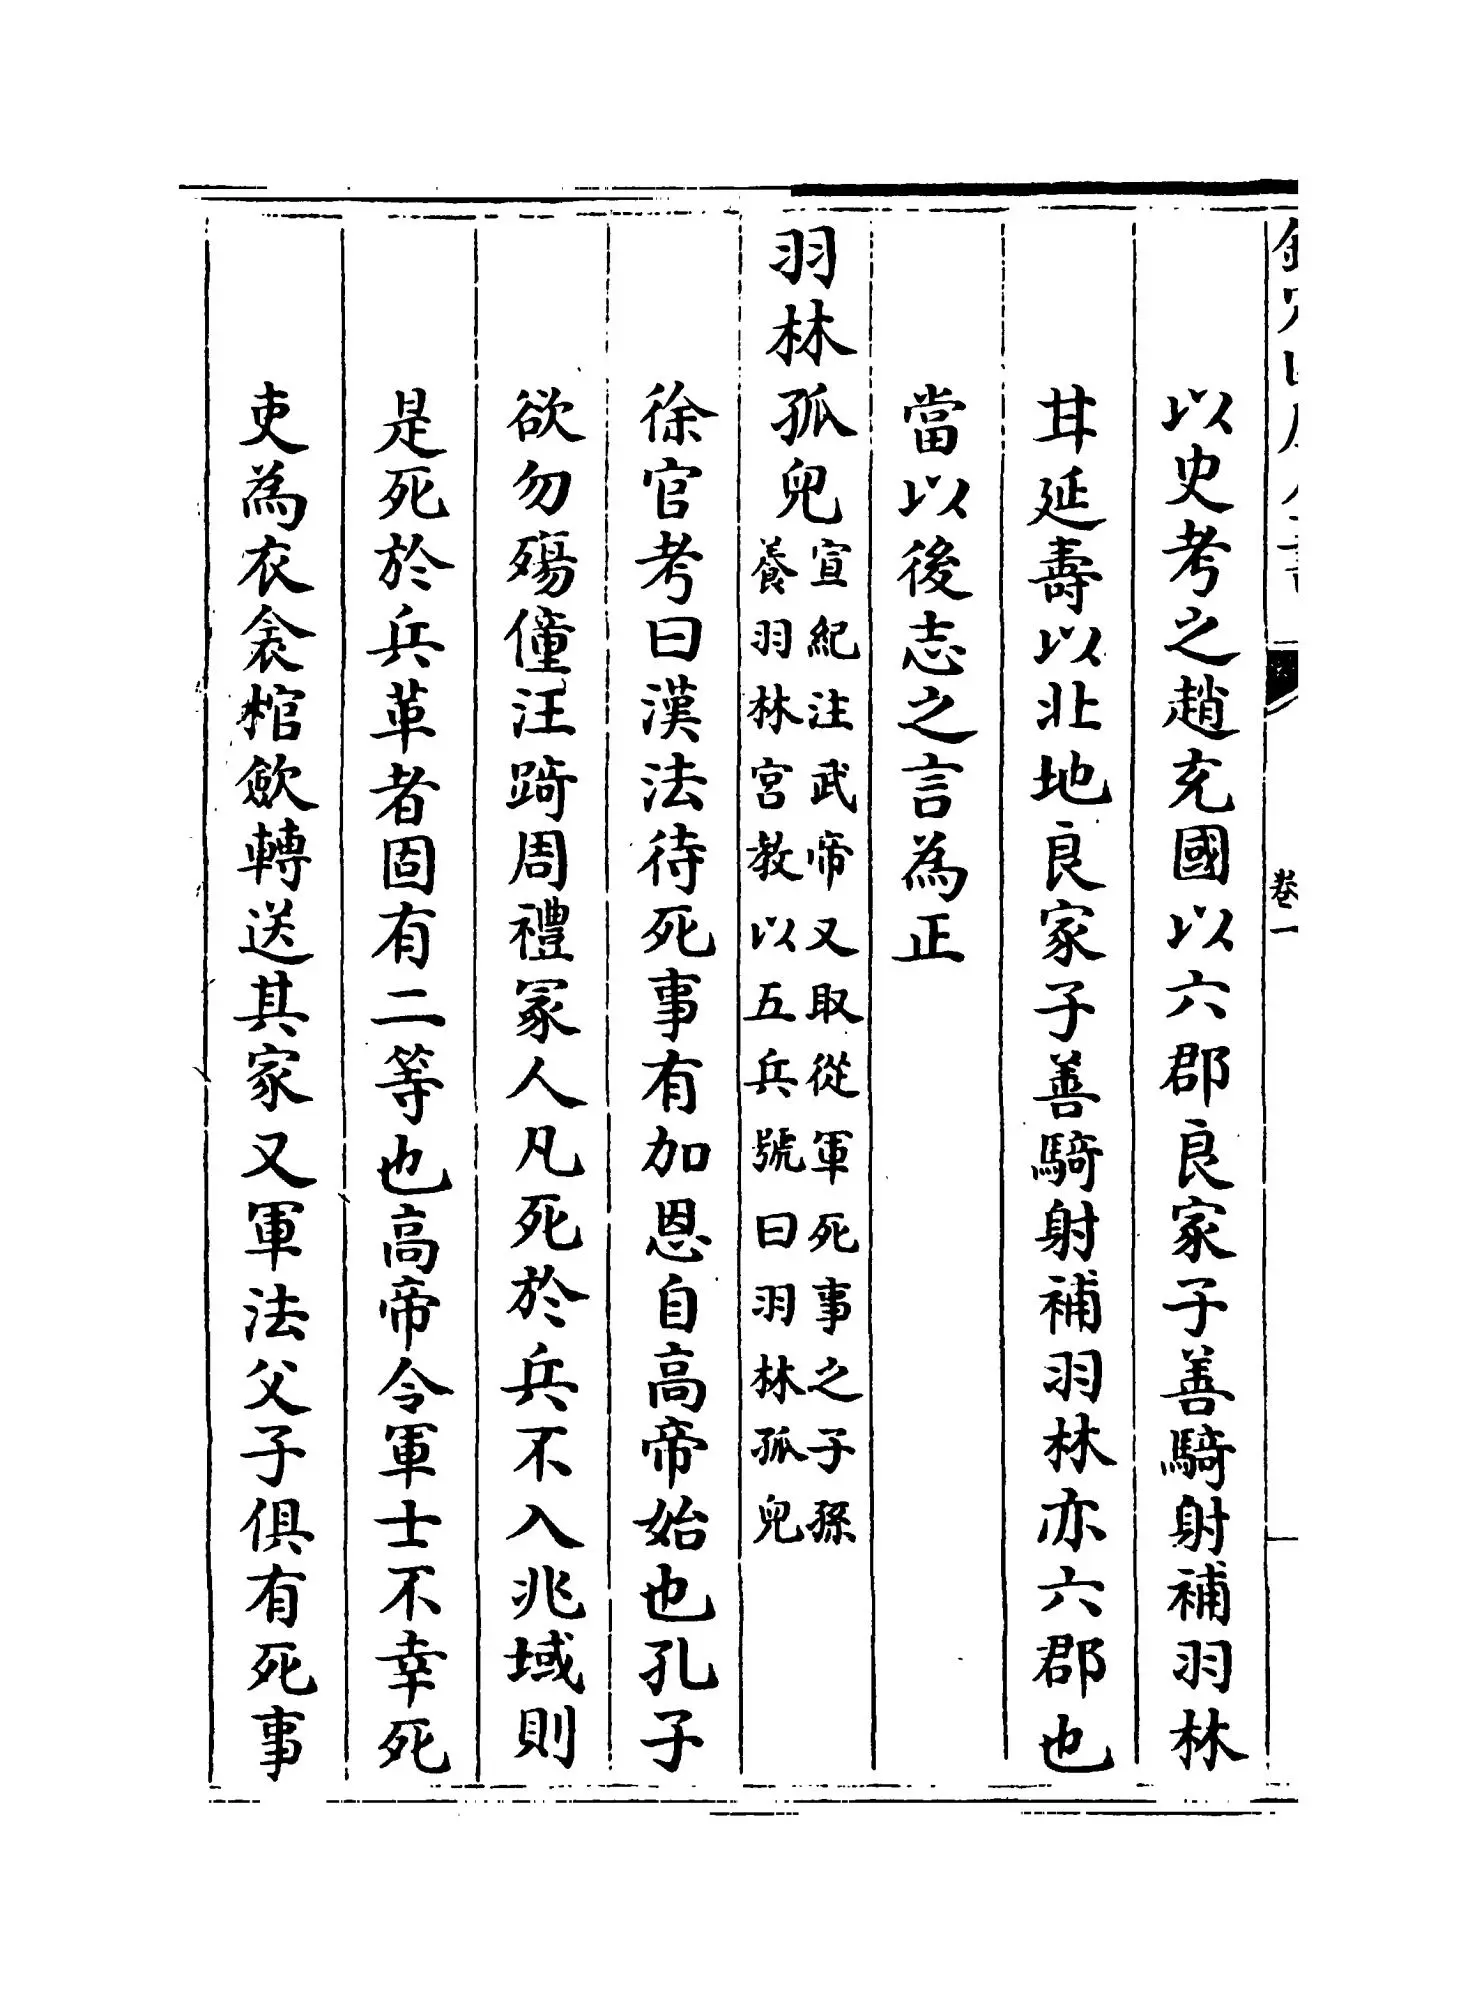 以史考之趙充國以六郡良家子善騎射補羽林
甘延壽以北地良家子善騎射補羽林亦六郡也
當以後志之言為正
羽林孤兒宣紀注武帝又取從軍死事之子孫
養羽林宮教以五兵號曰羽林孤兒
徐官考曰漢法待死事有加恩自高帝始也孔子
欲勿殤僮汪踦周禮冢人凡死於兵不入兆域則
是死於兵革者固有二等也高帝令軍士不幸死
吏為衣衾棺歛轉送其家又軍法父子俱有死事
卷一